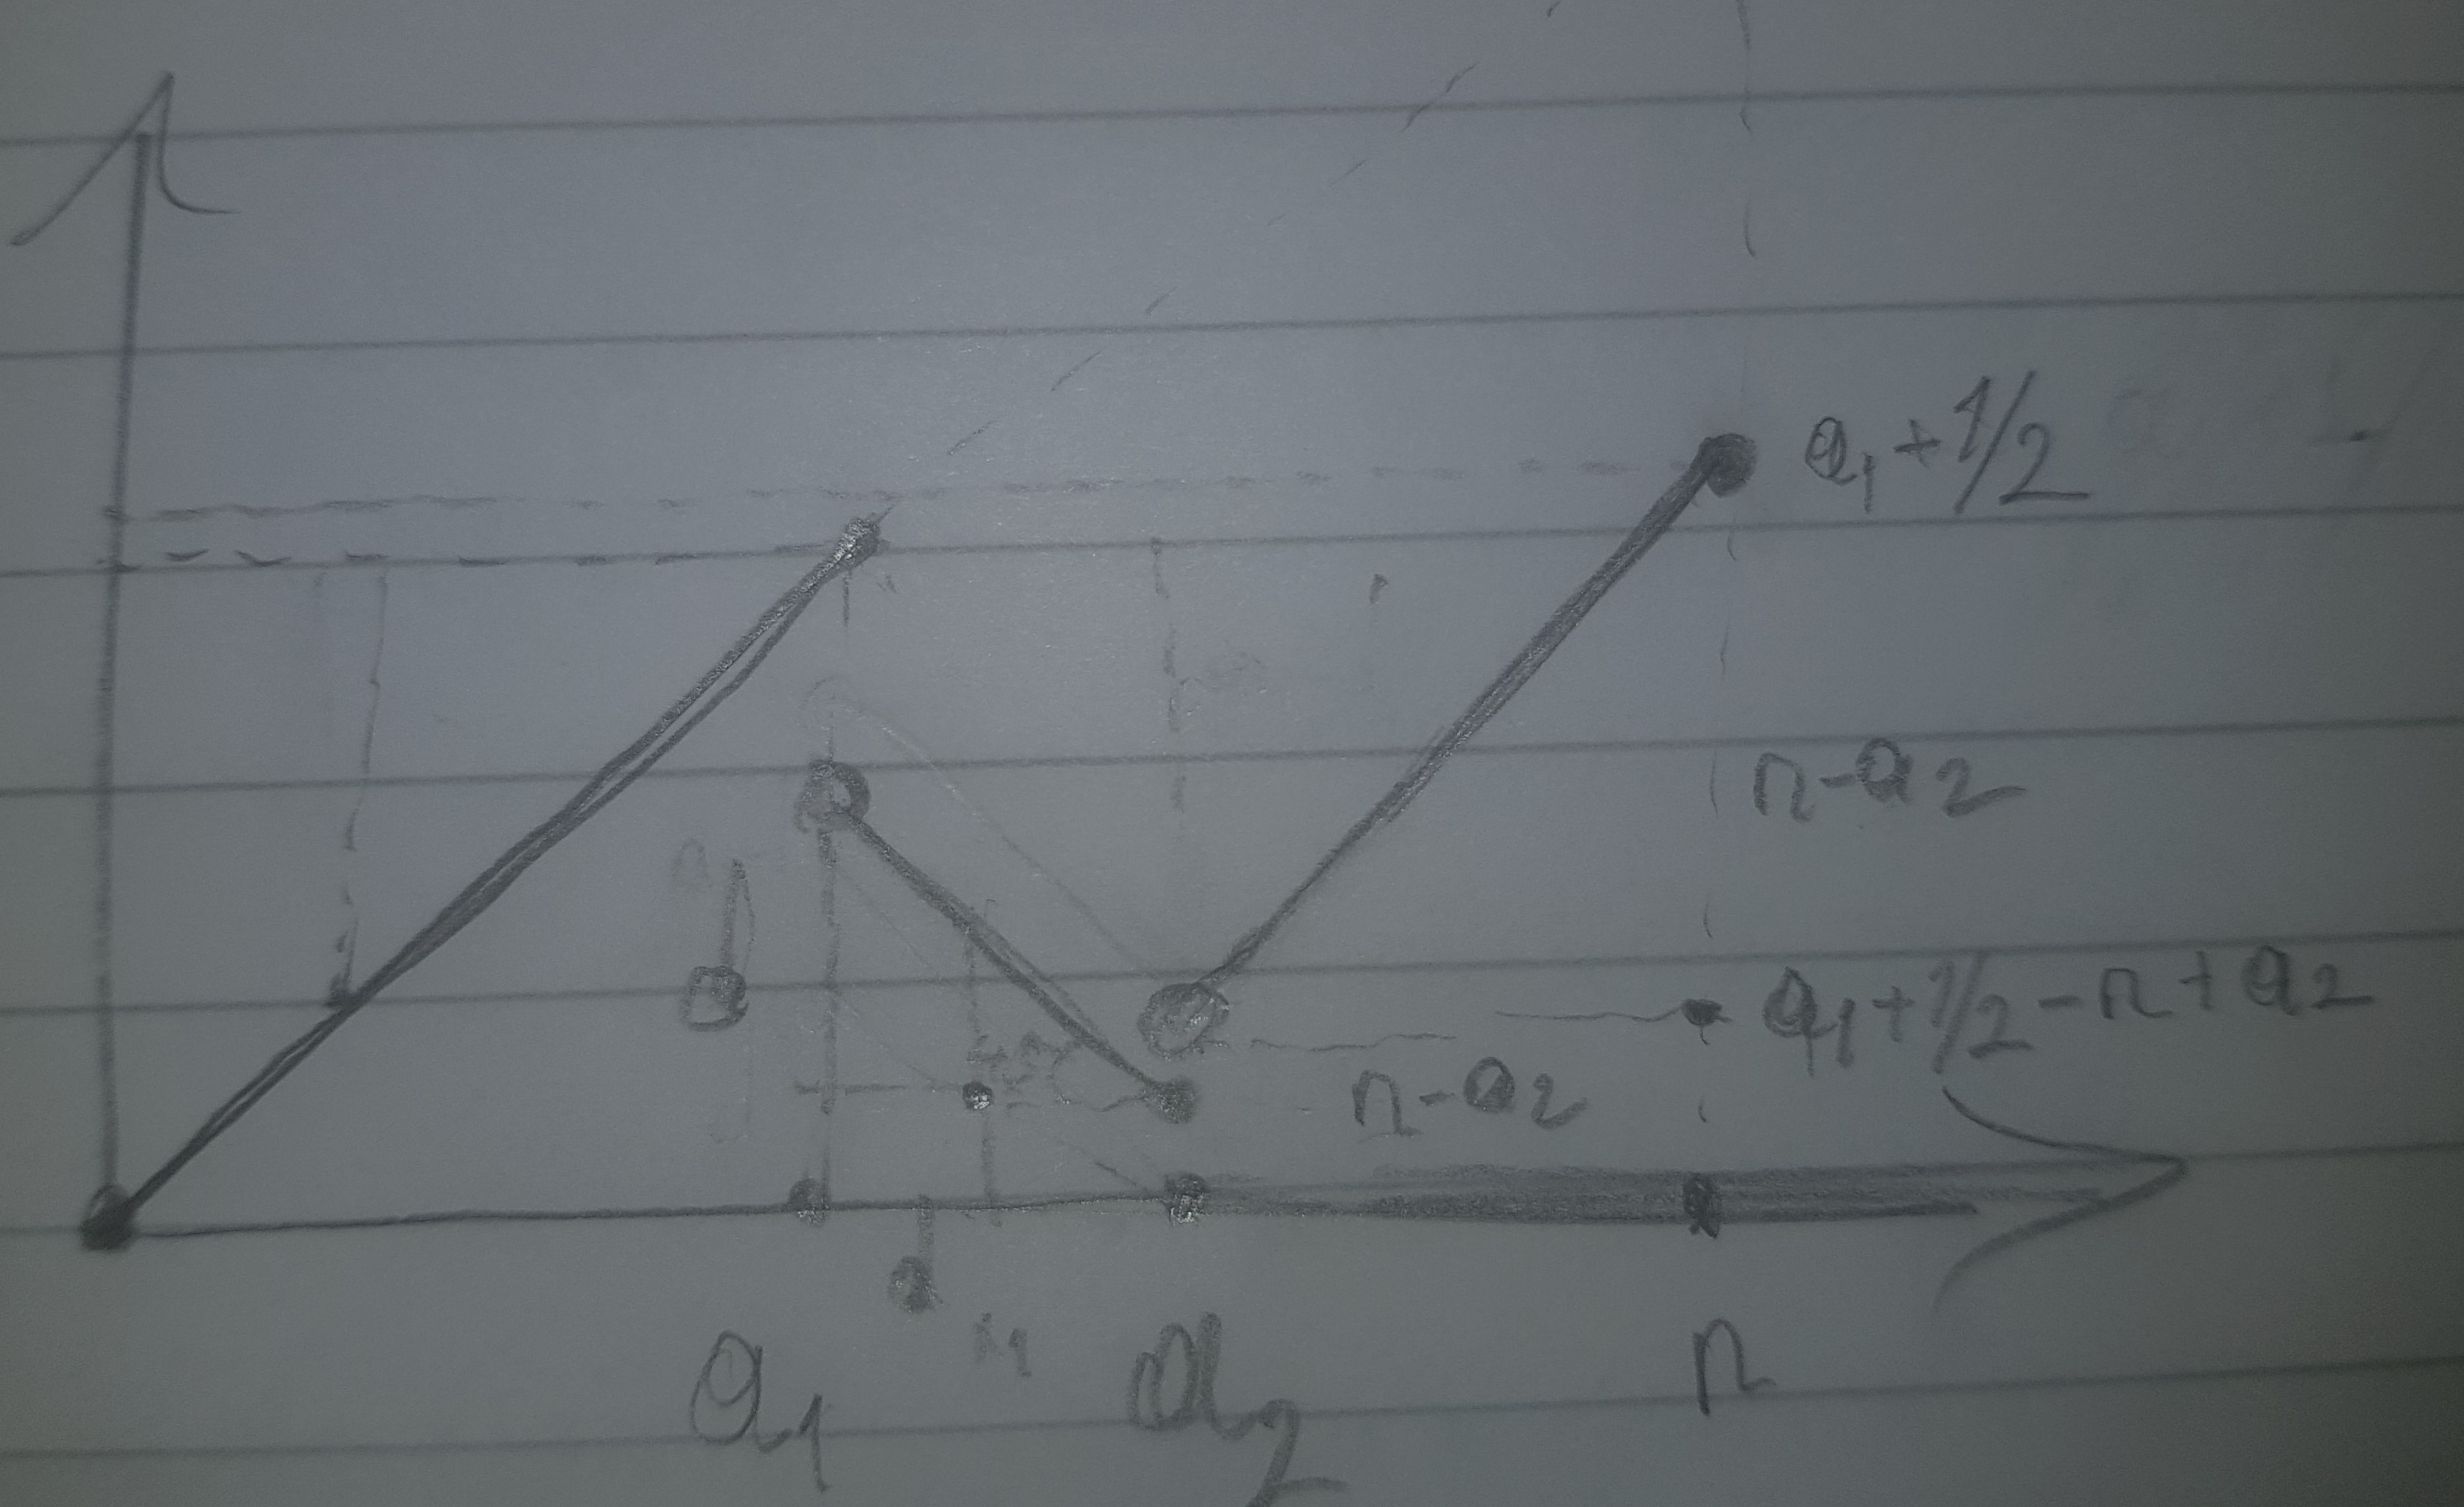 a₁ + 1/2
n-a₂
a₁ + 1/2 - n + a₂
n-a₂
a₁ a₂ n